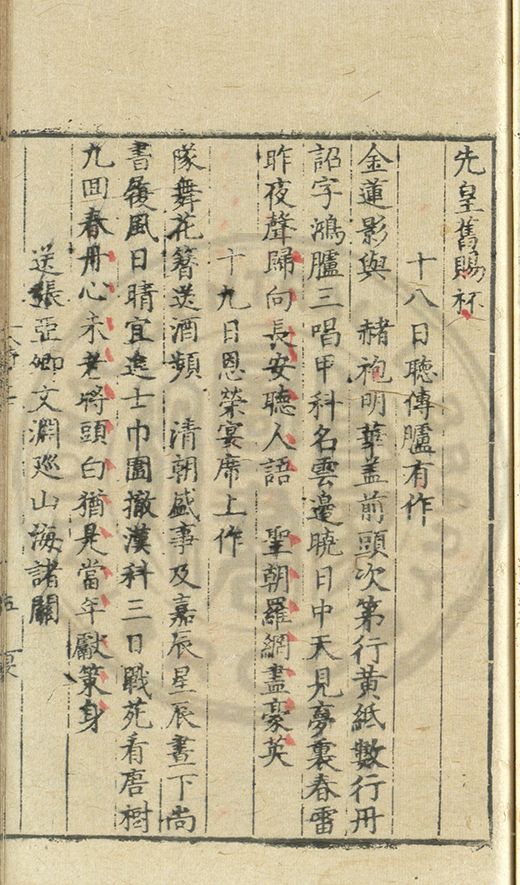 先皇舊賜杯
十八日聽傳臚有作
金蓮影與 赭袍明華盖前頭次第行黄紙數行丹
詔字鴻臚三唱甲科名雲邊曉日中天見夢裏春雷
昨夜聲歸向長安聽人語 聖朝羅網盡豪英
十九日恩榮宴席上作
隊舞花簪送酒頻 清朝盛事及嘉辰星辰晝下尚
書履風日晴宜進士巾圖撤漢科三日戰苑看唐樹
九回春丹心未老將頭白猶是當年獻策身
送張亞卿文淵廵山海諸關